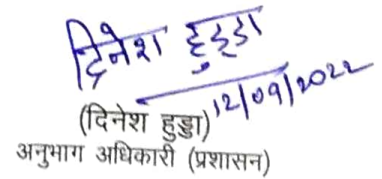 दिनेश हुड्डा
12/09/2022
(दिनेश हुड्डा)
अनुभाग अधिकारी (प्रशासन)